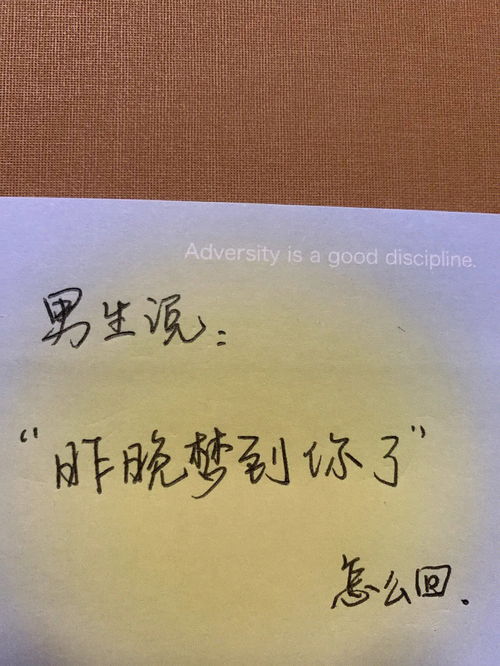 Adversity is a good discipline.
男生说：
“昨晚梦到你了”
怎么回.